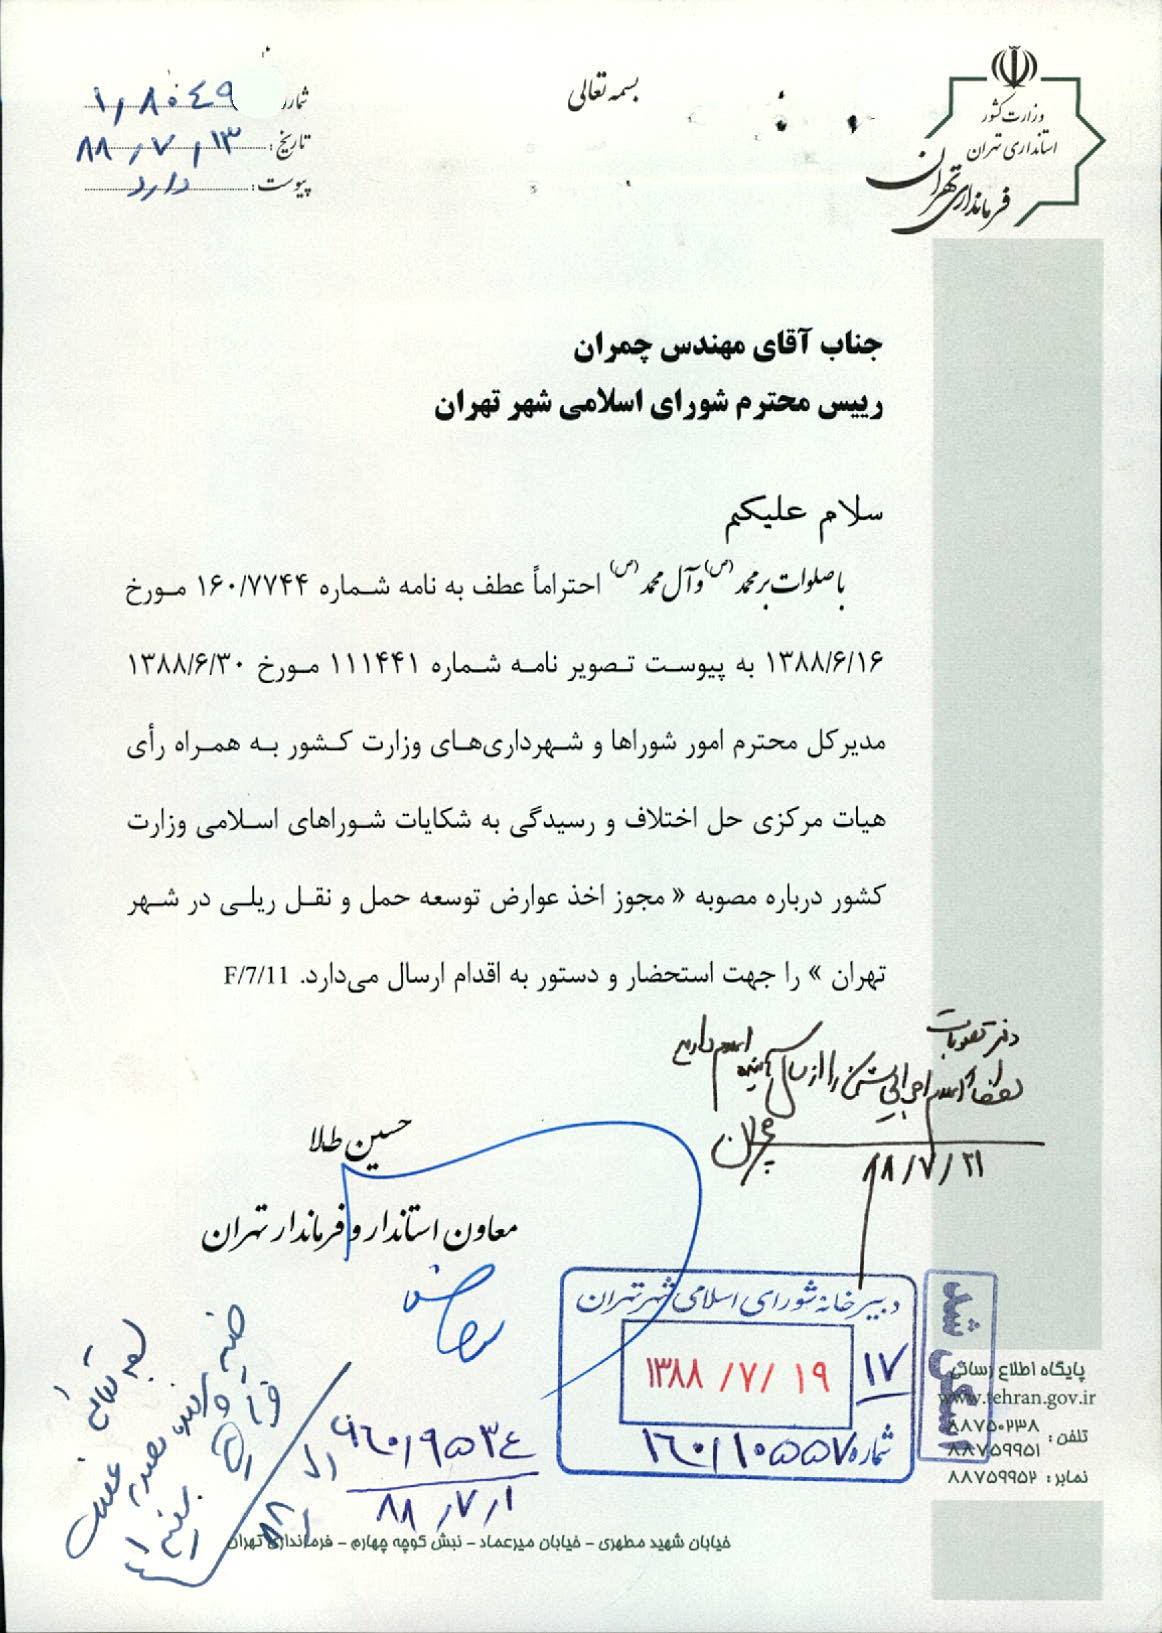 بسمه تعالی
وزارت کشور
استانداری تهران
فرمانداری تهران
شماره ۱/۸۰۴۹
تاریخ: ۸۸/۷/۱۳
پیوست: دارد
جناب آقای مهندس چمران
رییس محترم شورای اسلامی شهر تهران
سلام علیکم
با صلوات بر محمد (ص) و آل محمد (ص) احتراماً عطف به نامه شماره ۱۶۰/۷۷۴۴ مورخ
۱۳۸۸/۶/۱۶ به پیوست تصویر نامه شماره ۱۱۱۴۴۱ مورخ ۱۳۸۸/۶/۳۰
مدیرکل محترم امور شوراها و شهرداری‌های وزارت کشور به همراه رأی
هیات مرکزی حل اختلاف و رسیدگی به شکایات شوراهای اسلامی وزارت
کشور درباره مصوبه « مجوز اخذ عوارض توسعه حمل و نقل ریلی در شهر
تهران » را جهت استحضار و دستور به اقدام ارسال می‌دارد. F/7/11
دفتر مصوبات
چمران
۸۸/۷/۲۱
حسین طلا
معاون استاندار و فرماندار تهران
دبیرخانه شورای اسلامی شهر تهران
۱۳۸۸/۷/۱۹
۱۷
شماره ۱۶۰/۱۰۵۵۷
اسکن شد
۹۶۰/۹۵۳۴
۸۸/۷/۱
بسمه تعالی
پایگاه اطلاع رسانی
www.tehran.gov.ir
تلفن: ۸۸۷۵۰۲۳۸
۸۸۷۵۹۹۵۱
نمابر: ۸۸۷۵۹۹۵۲
خیابان شهید مطهری - خیابان میرعماد - نبش کوچه چهارم - فرمانداری تهران